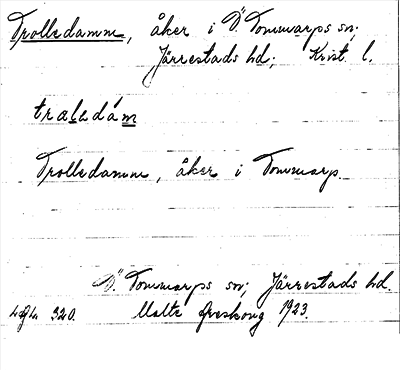 Trolledamm, åker i Ö. Tommarps sn;
Järrestads hd; Krist. l.
Trolledamm, åker i Tommarp.
Ö. Tommarps sn; Järrestads hd.
320. Malte 1923.